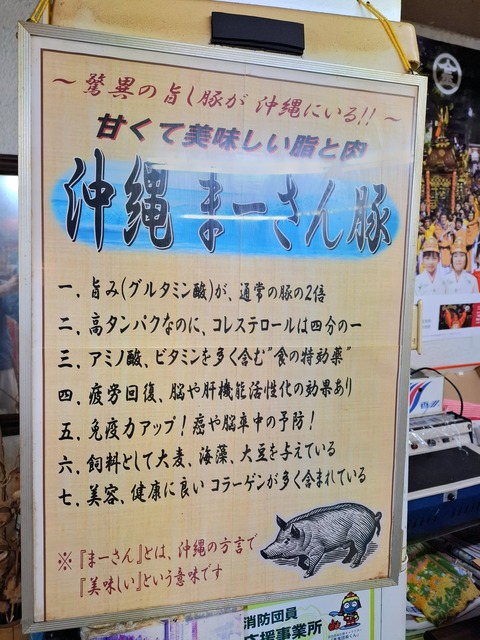 ～驚異の旨し豚が 沖縄にいる!!～
甘くて美味しい脂と肉
沖縄 まーさん豚
一、旨み(グルタミン酸)が、通常の豚の2倍
二、高タンパクなのに、コレステロールは四分の一
三、アミノ酸、ビタミンを多く含む"食の特効薬"
四、疲労回復、脳や肝機能活性化の効果あり
五、免疫力アップ！癌や脳卒中の予防！
六、飼料として大麦、海藻、大豆を与えている
七、美容、健康に良い コラーゲンが多く含まれている
※『まーさん』とは、沖縄の方言で
『美味しい』という意味です
消防団員
応援事業所